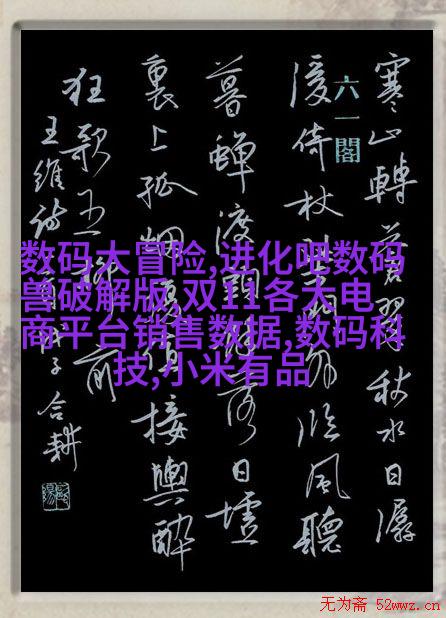 数码大冒险,进化吧数码
兽破解版,双11各大电
商平台销售数据,数码科
技,小米有品
寒山轉蒼翠秋水日潺
六一閣
湲倚杖柴門外臨風聽
暮蟬渡頭餘落日墟
裏上孤烟復值接輿醉
狂歌五柳前
王維詩 子合耕
无为斋 52wwz.cn